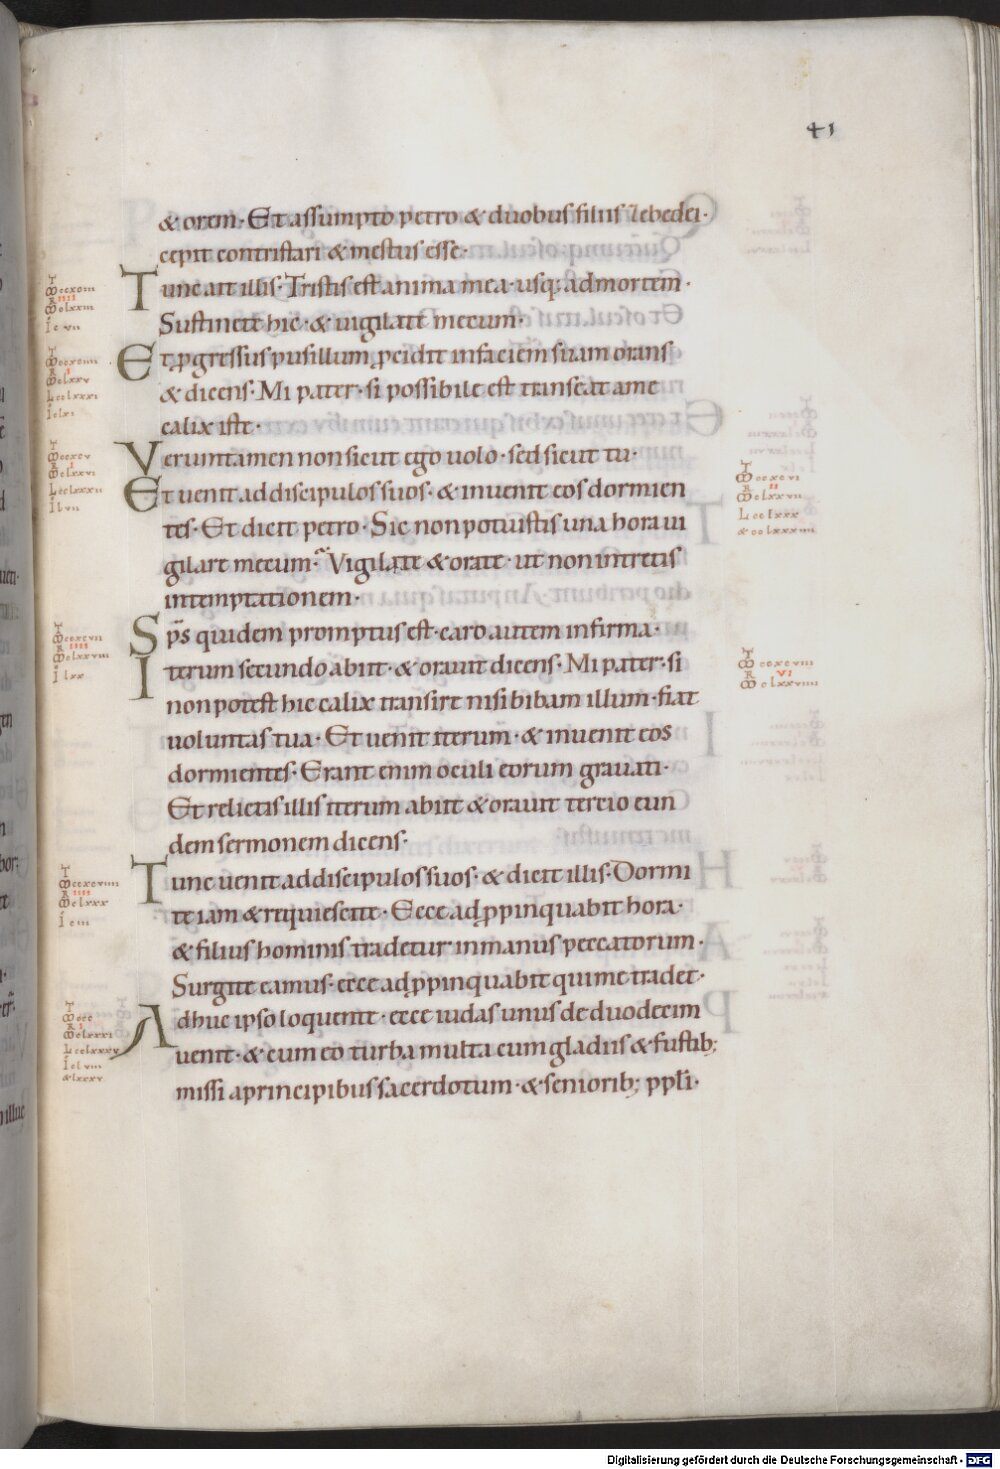 41
& orem· Et assumpto petro & duobus filiis zebedei·
cepit contristari & mestus esse·
Tunc ait illis· Tristis est anima mea· usq; ad mortem·
Sustinete hic· & uigilate mecum·
Et ꝓgressus pusillum ꝓcidit in faciem suam orans
& dicens· Mi pater· si possibile est transeat a me
calix iste·
Veruntamen non sicut ego uolo· sed sicut tu·
Et uenit ad discipulos suos· & inuenit eos dormien
tes· Et dicit petro· Sic non potuistis una hora ui
gilare mecum· Vigilate & orate· ut non intretis
in temptationem·
Sp̄s quidem promptus est· caro autem infirma·
Iterum secundo abiit· & orauit dicens· Mi pater· si
non potest hic calix transire nisi bibam illum· fiat
uoluntas tua· Et uenit iterum· & inuenit eos
dormientes· Erant enim oculi eorum grauati·
Et relictis illis iterum abiit & orauit tercio eun
dem sermonem dicens·
Tunc uenit ad discipulos suos· & dicit illis· Dormi
te iam & requiescite· Ecce adꝓpinquabit hora·
& filius hominis tradetur in manus peccatorum·
Surgite eamus· ecce adꝓpinquabit qui me tradet·
Adhuc ipso loquente· ecce iudas unus de duodecim
uenit· & cum eo turba multa cum gladiis & fustib;
missi a principibus sacerdotum· & seniorib; ppl̄i·
Digitalisierung gefördert durch die Deutsche Forschungsgemeinschaft - DFG